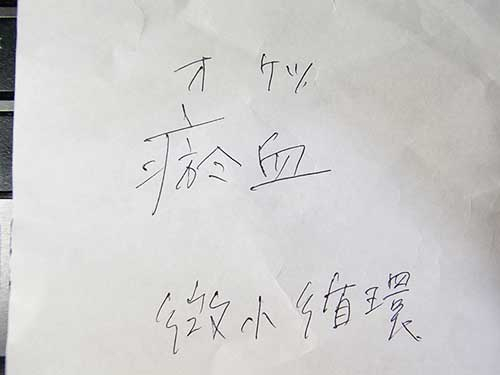 オケツ
瘀血
微小循環